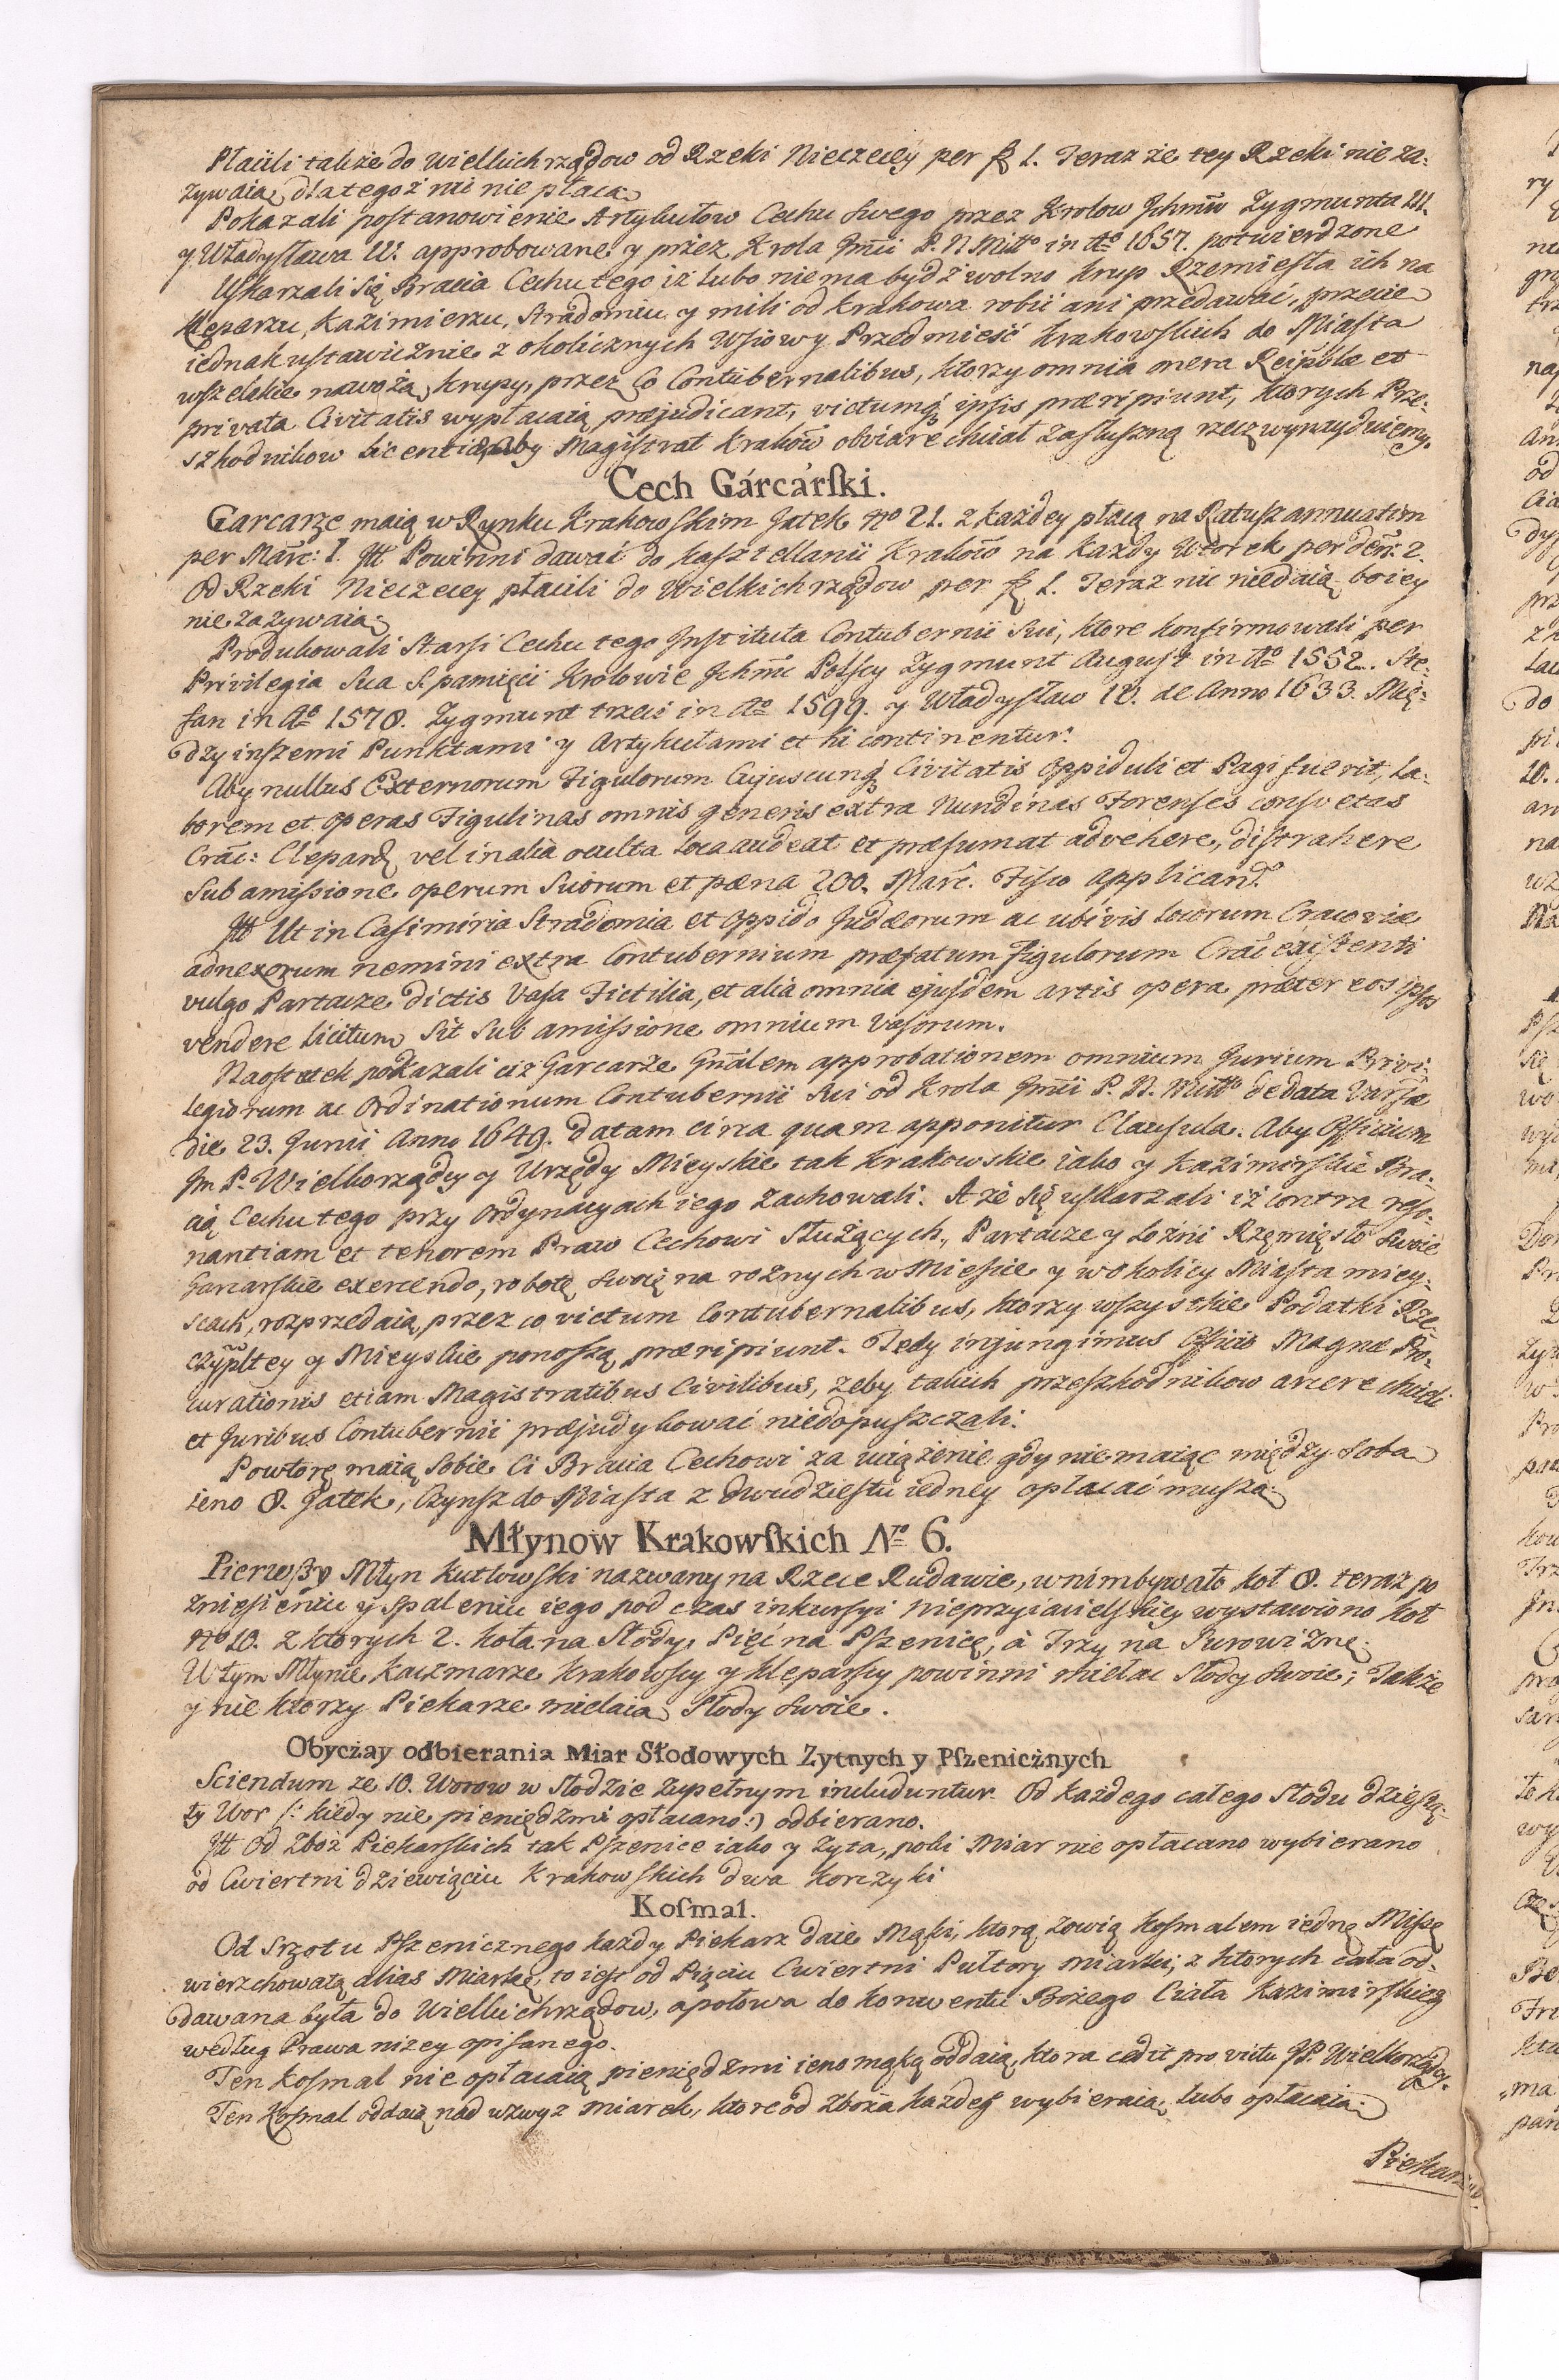 Płacili także do wielkichrządow od Rzeki Nieczecey per ƒ 1. Teraz że tey Rzeki nie za:
żywaią dla tegoż nic nie płacą
Pokazali postanowienie Artykułow Cechu swego przez Krolow Ichmw Zygmunta III.
y Władysława IV. approbowane y przez Krola Jmci P. N. Mitto in Ao 1657. potwierdzone
Uskarzali się Bracia Cechu tego iż lubo niema bydź wolno krup Rzemiesła ich na
Kleparzu, Kazimierzu, Stradomiu y mili od Krakowa robić ani przedawać, przecie
iednak ustawicznie z okolicznych Wsiow y Przedmieść Krakowskich do Miasta
wszelakie nawożą krupy, przez Co Contubernalibus, ktorzy omnia onera Reipblæ et
privata Civitatis wypłacaią præjudicant, victumq ipsis præripiunt, ktorych Prze:
szkodnikow licentią, aby Magistrat Krakow obviare chciał za słuszną rzecz wynaydujemy.
Cech Gárcárski.
Garcarze maią w Rynku Krakowskim Jatek No 21. z każdey płacą na Ratusz annuatim
per Marc: 1. It Powinni dawać do kasztellanii Krakow na każdy Wtorek per den: 2.
Od Rzeki Nieczecey płacili do Wielkichrządow per ƒ 1. Teraz nic niedaią bo iey
nie zażywaią
Produkowali Starsi Cechu tego Instituta Contubernii sui, ktore konfirmowali per
Privilegia sua S. pamięci Krolowie Ichmc Polscy Zygmunt August in Ao 1552. Ste:
fan in Ao 1578. Zygmunt trzeci in Ao 1599. y Władysław IV. de Anno 1633. Mię:
dzy inszemi Punktami y Artykułami et hi continentur.
Aby nullus Externorum Figulorum Cujuscunq Civitatis Oppiduli et Pagi fuerit, La:
borem et operas Figulinas omnis generis extra Nundinas Forenses consvetas
Crac: Clepard vel in alia oculta loca audeat et præsumat advehere, distrahere
sub amissione operum suorum et pæna 200. Marc. Fisco applicand.
It Ut in Casimiria Stradomia et Oppido Judæorum ac ubivis locorum Cracoviæ
adnexorum nemini extra Contubernium præfatum Figulorum Crac existenti
vulgo Partacze dictis Vasa Fictilia, et alia omnia ejusdem artis opera præter eos ipsos
vendere licitum sit sub amissione omnium Vasorum.
Naostatek pokazali ciż Garcarze Gnalem approbationem omnium Jurium Privi:
legiorum ac Ordinationum Contubernii sui od Krola Jmci P. N. Mitto de data Varsæ
die 23. Junii Anno 1649. datam circa quam apponitur Clausula. Aby Officium
Jm P. Wielkorządcy y Urzędy Mieyskie tak Krakowskie iako y Kazimirskie Bra:
cią Cechu tego przy Ordynacyach iego zachowali. A że się uskarzali iż contra reso:
nantiam et tenorem Praw Cechowi służących, Partacze y Loźni Rzęmięsło swoie
Garcarskie exercendo, robotę swoię na rożnych w Mieście y wokolicy Miasta miey:
scach, rozprzedaią, przez co victum Contubernalibus, ktorzy wszystkie Podatki Rze:
czypltey y Mieyskie ponoszą præripiunt. Tedy injungimus Officio Magnæ Pro:
curationis etiam Magistratibus Civilibus, zeby takich przeszkodnikow arcere chcieli
et Juribus Contubernii præjudykować niedopuszczali.
Powtorę maią sobie Ci Bracia Cechowi za uciążenie gdy niemaiąc między soba
ieno 8. Jatek, Czynsz do Miasta z dwudziestu iedney opłacać muszą
Młynow Krakowskich No 6.
Pierwszy Młyn Kutłowski nazwany na Rzece Rudawie, w nim bywało koł 8. teraz po
zniesieniu y spaleniu iego pod czas inkursyi nieprzyiacielskiey wystawiono koł
No 10. z ktorych 2. koła na Słody, Pięć na Pszenicę, à Trzy na Surowiznę.
W tym Młynie Kaczmarze Krakowscy y Kleparscy powinni mielac Słody swoie; Także
y nie ktorzy Piekarze mielaią Słody swoie.
Obyczay odbierania Miar Słodowych Zytnych y Pszenicznych
Sciendum ze 10. Worow w słodzie zupełnym includuntur. Od każdego całego słodu dziesią:
ty Wor (: kiedy nie pieniędzmi opłacano :) odbierano.
It Od Zboż Piekarskich tak Pszenice iako y Zyta, poki Miar nie opłacano wybierano
od Cwiertni dziewiąciu Krakowskich dwa korczyki
Kosmal.
Od Srzotu Pszenicznego każdy Piekarz daie Mąki, ktorą zowią kosmalem iednę Missę
wierzchowatą alias Miarkę, to iest od Pięciu Cwiertni Pułtory miarki; z ktorych cała od:
dawana była do Wielkichrządow, a połowa do konwentu Bożego Ciała Kazimirskieg
według Prawa nizey opisanego.
Ten kosmal nie opłacaią pieniędzmi ieno mąką oddaią, ktora cedit pro victu JP. Wielkorządcy.
Ten kosmal oddaią nad wzwyz miarek, ktore od zboża każdeg wybieraią, lubo opłacaią
Piekarze